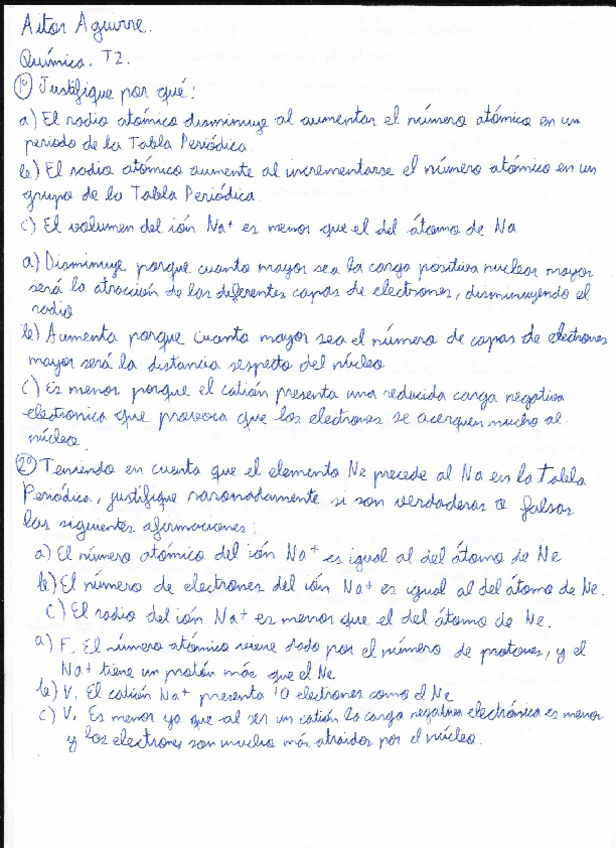 Aitor Aguirre.
Química. T2.
1º) Justifique por qué:
a) El radio atómico disminuye al aumentar el número atómico en un
periodo de la Tabla Periódica
b) El radio atómico aumente al incrementarse el número atómico en un
grupo de la Tabla Periódica.
c) El volumen del ión Na+ es menor que el del átomo de Na
a) Disminuye porque cuanto mayor sea la carga positiva nuclear mayor
será la atracción de las diferentes capas de electrones, disminuyendo el
radio
b) Aumenta porque cuanto mayor sea el número de capas de electrones
mayor será la distancia respecto del núcleo
c) Es menor porque el catión presenta una reducida carga negativa
electrónica que provoca que los electrones se acerquen mucho al
núcleo.
2º) Teniendo en cuenta que el elemento Ne precede al Na en la Tabla
Periódica, justifique razonadamente si son verdaderas o falsas
las siguientes afirmaciones:
a) El número atómico del ión Na+ es igual al del átomo de Ne
b) El número de electrones del ión Na+ es igual al del átomo de Ne.
c) El radio del ión Na+ es menor que el del átomo de Ne.
a) F. El número atómico viene dado por el número de protones, y el
Na+ tiene un protón más que el Ne
b) V. El catión Na+ presenta 10 electrones como el Ne
c) V. Es menor ya que al ser un catión la carga negativa electrónica es menor
y los electrones son mucho más atraidos por el núcleo.